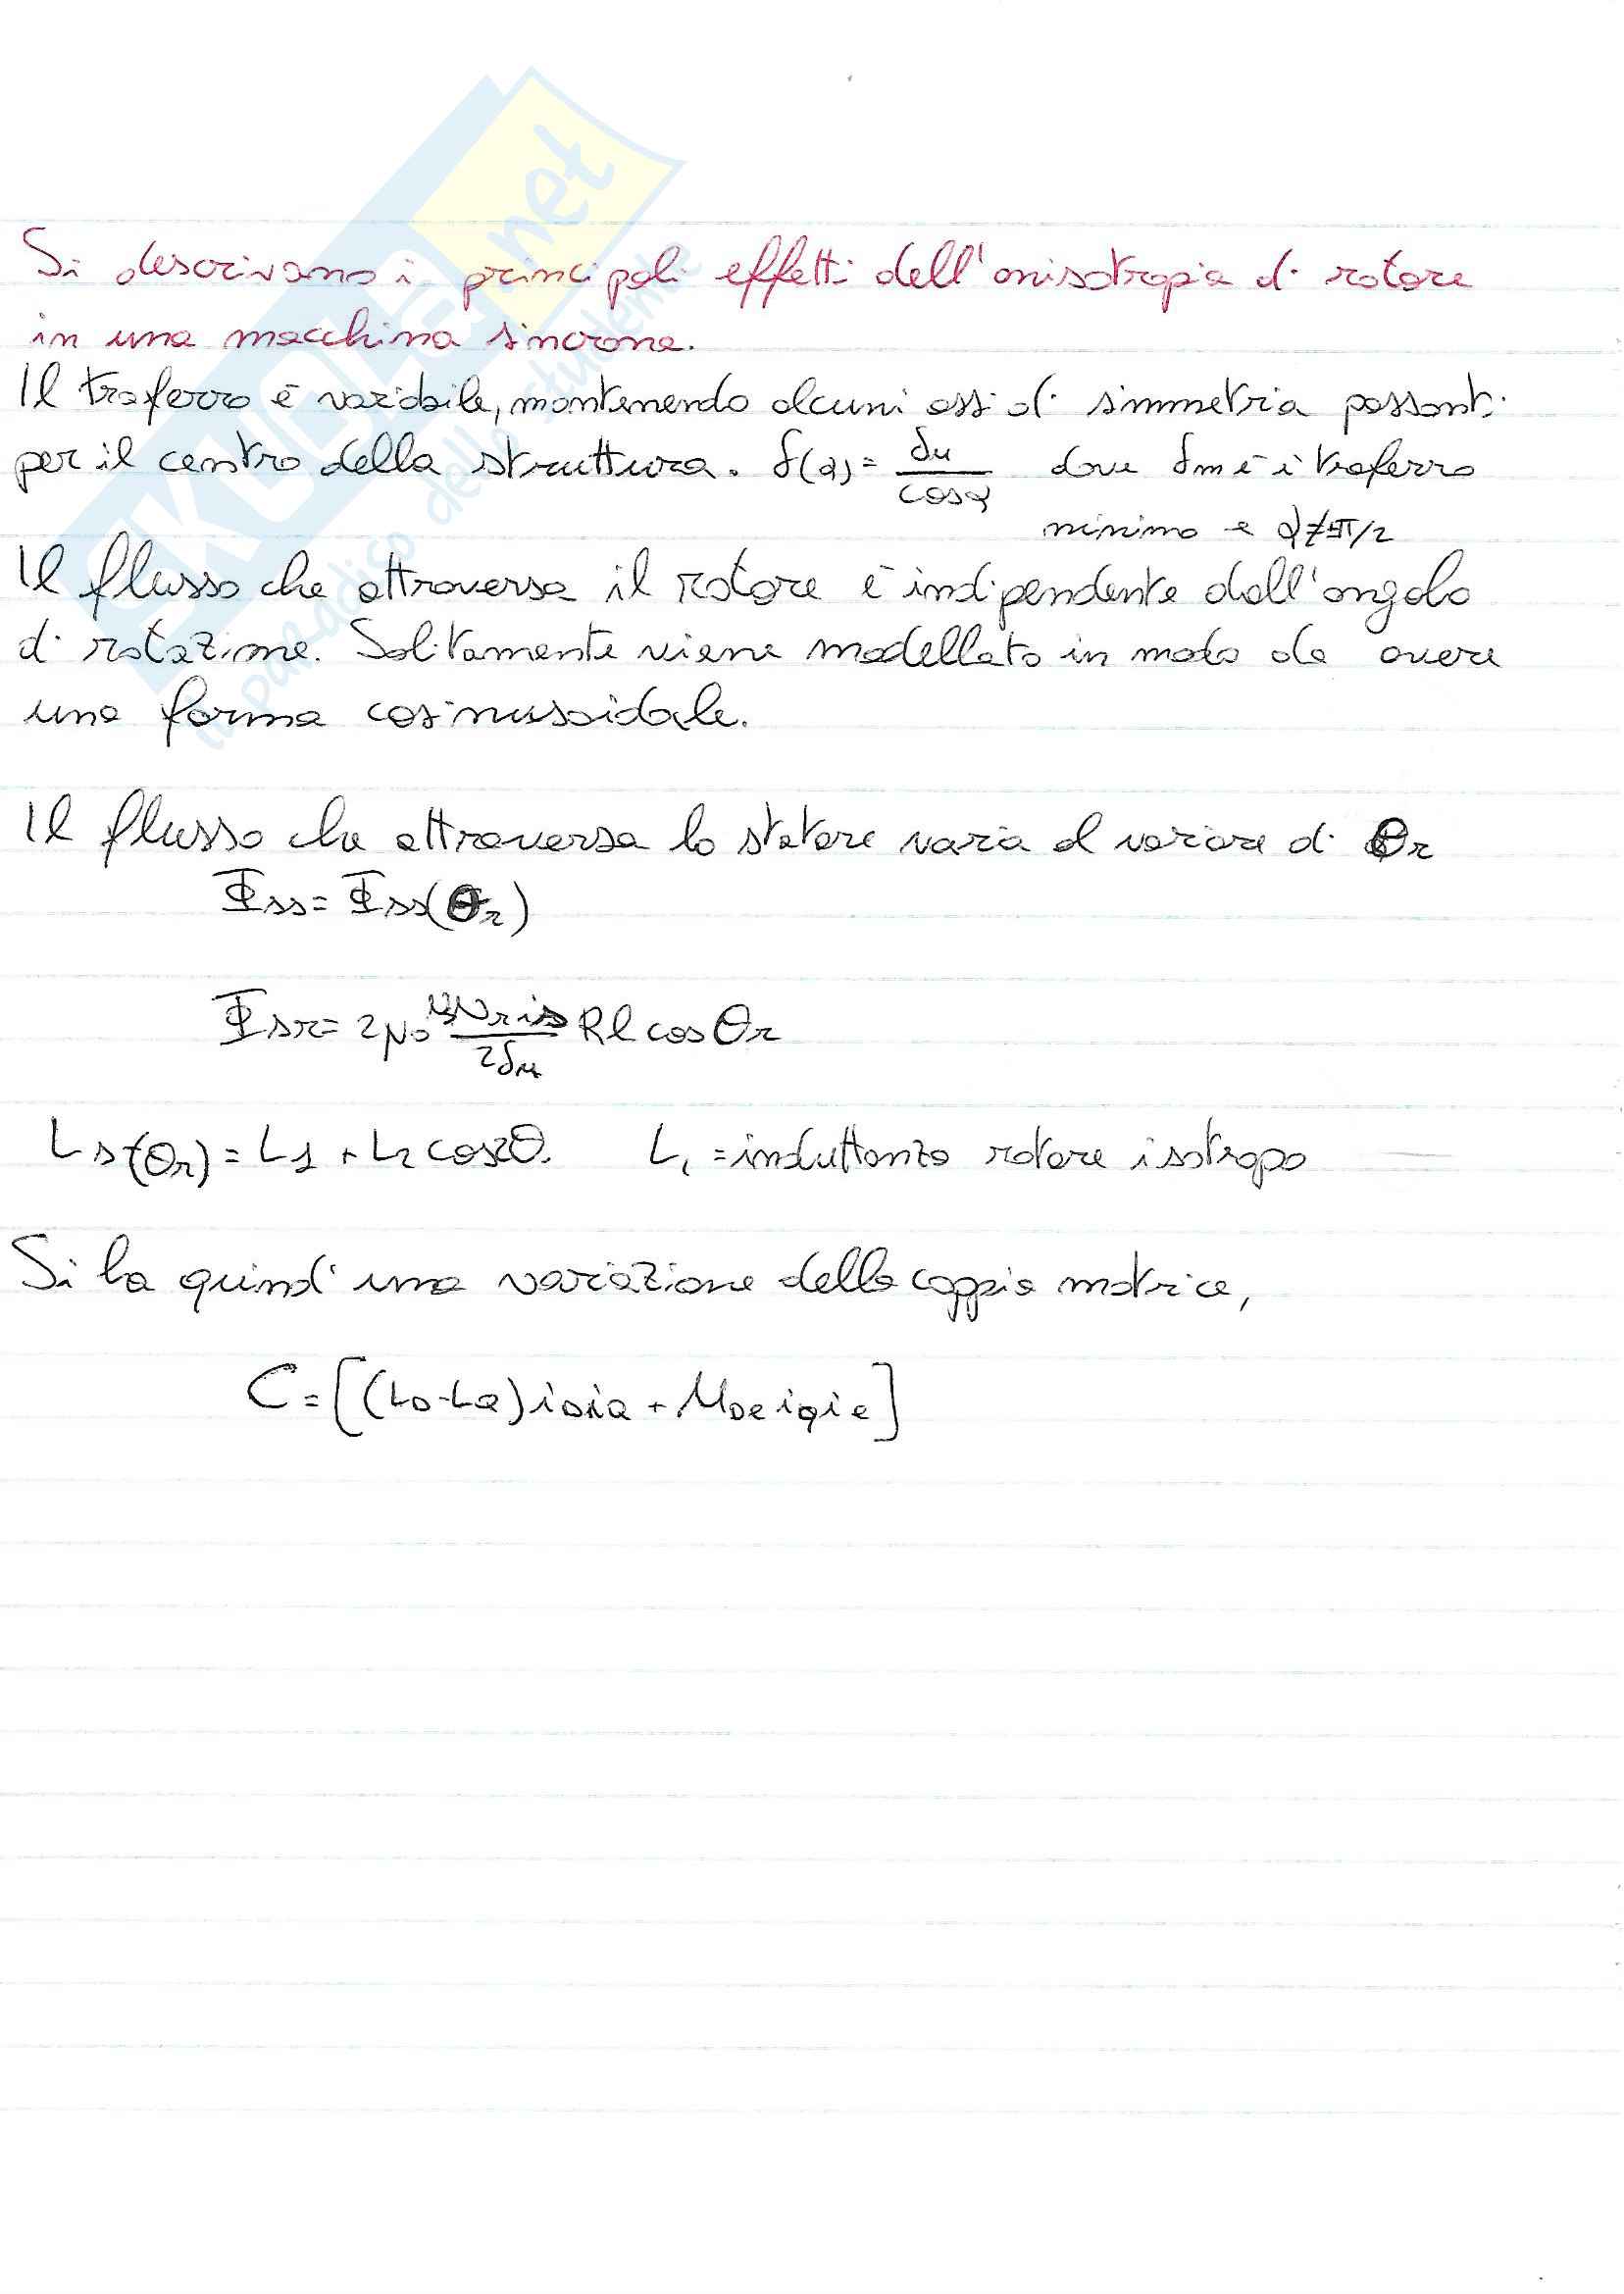 SKUOLA.net
il paradiso dello studente
Si descrivano i principali effetti dell'anisotropia di rotore
in una macchina sincrona.
Il traferro è variabile, mantenendo alcuni assi di simmetria passanti
per il centro della struttura. δ(α) = δM/cosα dove δm è il traferro
minimo e α≠π/2
Il flusso che attraversa il rotore è indipendente dall'angolo
di rotazione. Solitamente viene modellato in modo da avere
una forma cosinussoidale.
Il flusso che attraversa lo statore varia al variare di θr
Φss = Φss(θr)
Φsr = 2μ0 NsNris/2δM Rl cosθr
Ls(θr) = L1 + L2 cos2θ. L1 = induttanza rotore isotropo
Si ha quindi una variazione della coppia motrice,
C = [(LD-LQ)iDiQ + MDe iQie]